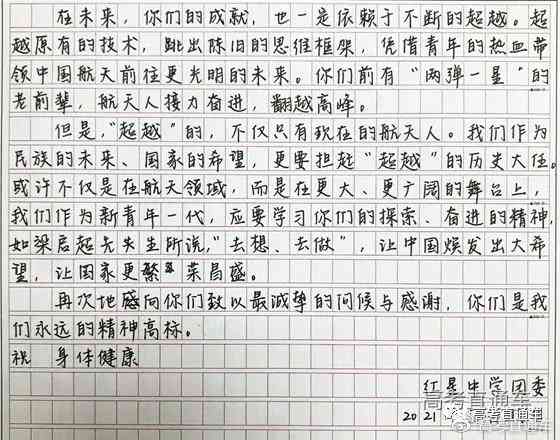 在未来，你们的成就，也一是依赖于不断的超越。超
越原有的技术，跳出陈旧的思维框架，凭借青年的热血带
领中国航天前往更光明的未来。你们前有“两弹一星”的
老前辈，航天人接力奋进，翻越高峰。
但是，“超越”的，不仅只有现在的航天人。我们作为
民族的未来、国家的希望，更要担起“超越”的历史大任。
或许不仅是在航天领域，而是在更大、更广阔的舞台上，
我们作为新青年一代，应要学习你们的探索、奋进的精神，
如梁启超先生所说，“去想、去做”，让中国焕发出大希
望，让国家更繁荣昌盛。
再次地向你们致以最诚挚的问候与感谢，你们是我
们永远的精神高标。
祝 身体健康
红星中学团委
高考直通车
2021
高考直通车